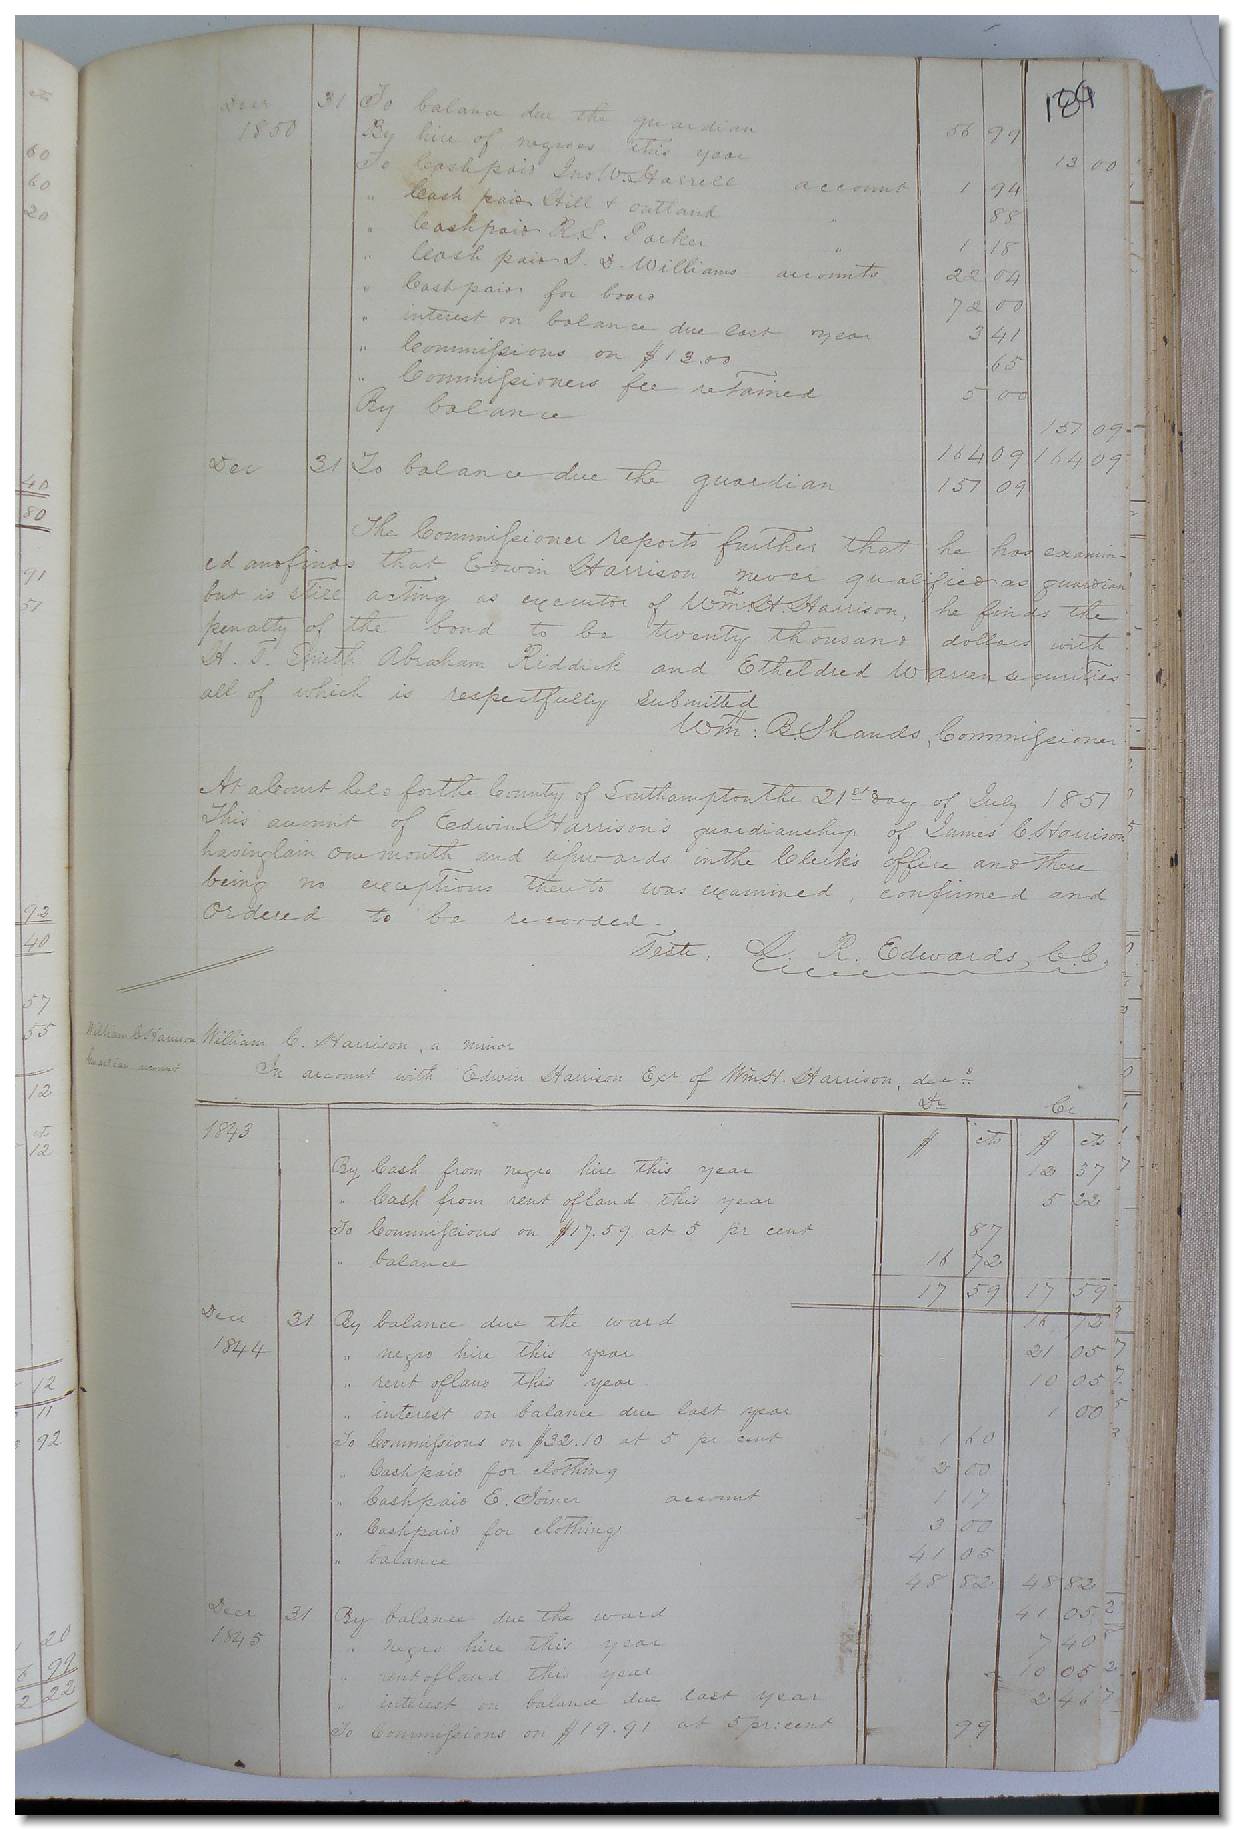 189
Decr 31 To balance due the guardian 56 99
1850 By hire of negroes this year 13 00
To Cash paid Jno W. Harrell account 1 94
" Cash paid Hill & outland " 88
" Cash paid R. S. Parker " 1 18
" Cash paid S. D. Williams accounts 22 04
" Cash paid for board 72 00
" interest on balance due last year 3 41
" Commissions on $13.00 65
" Commissioners fee retained 5 00
By balance 151 09
164 09 164 09
Dec 31 To balance due the guardian 151 09
The Commissioner reports further that he has examin-
ed and finds that Edwin Harrison never qualified as guardian
but is still acting as executor of Wm. H. Harrison, he finds the
penalty of the bond to be twenty thousand dollars with
H. T. Smith Abraham Riddick and Etheldred Warren securities
all of which is respectfully submitted
Wm: B. Shands, Commissioner
At a Court held for the County of Southampton the 21st day of July 1851
This account of Edwin Harrison's guardianship of James C Harrison
having lain one month and upwards in the Clerk's office and there
being no exceptions thereto was examined, confirmed and
ordered to be recorded.
Teste, L. R. Edwards, C.C.
William C Harrison
Guardian account
William C. Harrison, a minor
In account with Edwin Harrison Exr of Wm H. Harrison, decd
Dr Cr
1843 $ cts $ cts
By Cash from negro hire this year 12 37
" Cash from rent of land this year 5 22
To Commissions on $17.59 at 5 pr cent 87
" balance 16 72
17 59 17 59
Decr 31 By balance due the ward 16 72
1844 " negro hire this year 21 05
" rent of land this year 10 05
" interest on balance due last year 1 00
To Commissions on $32.10 at 5 pr cent 1 60
" Cash paid for clothing 2 00
" Cash paid E. Joiner account 1 17
" Cash paid for clothing 3 00
" balance 41 05
48 82 48 82
Decr 31 By balance due the ward 41 05
1845 " negro hire this year 7 40
" rent of land this year 10 05
" interest on balance due last year 2 46
To Commissions on $19.91 at 5 pr: cent 99